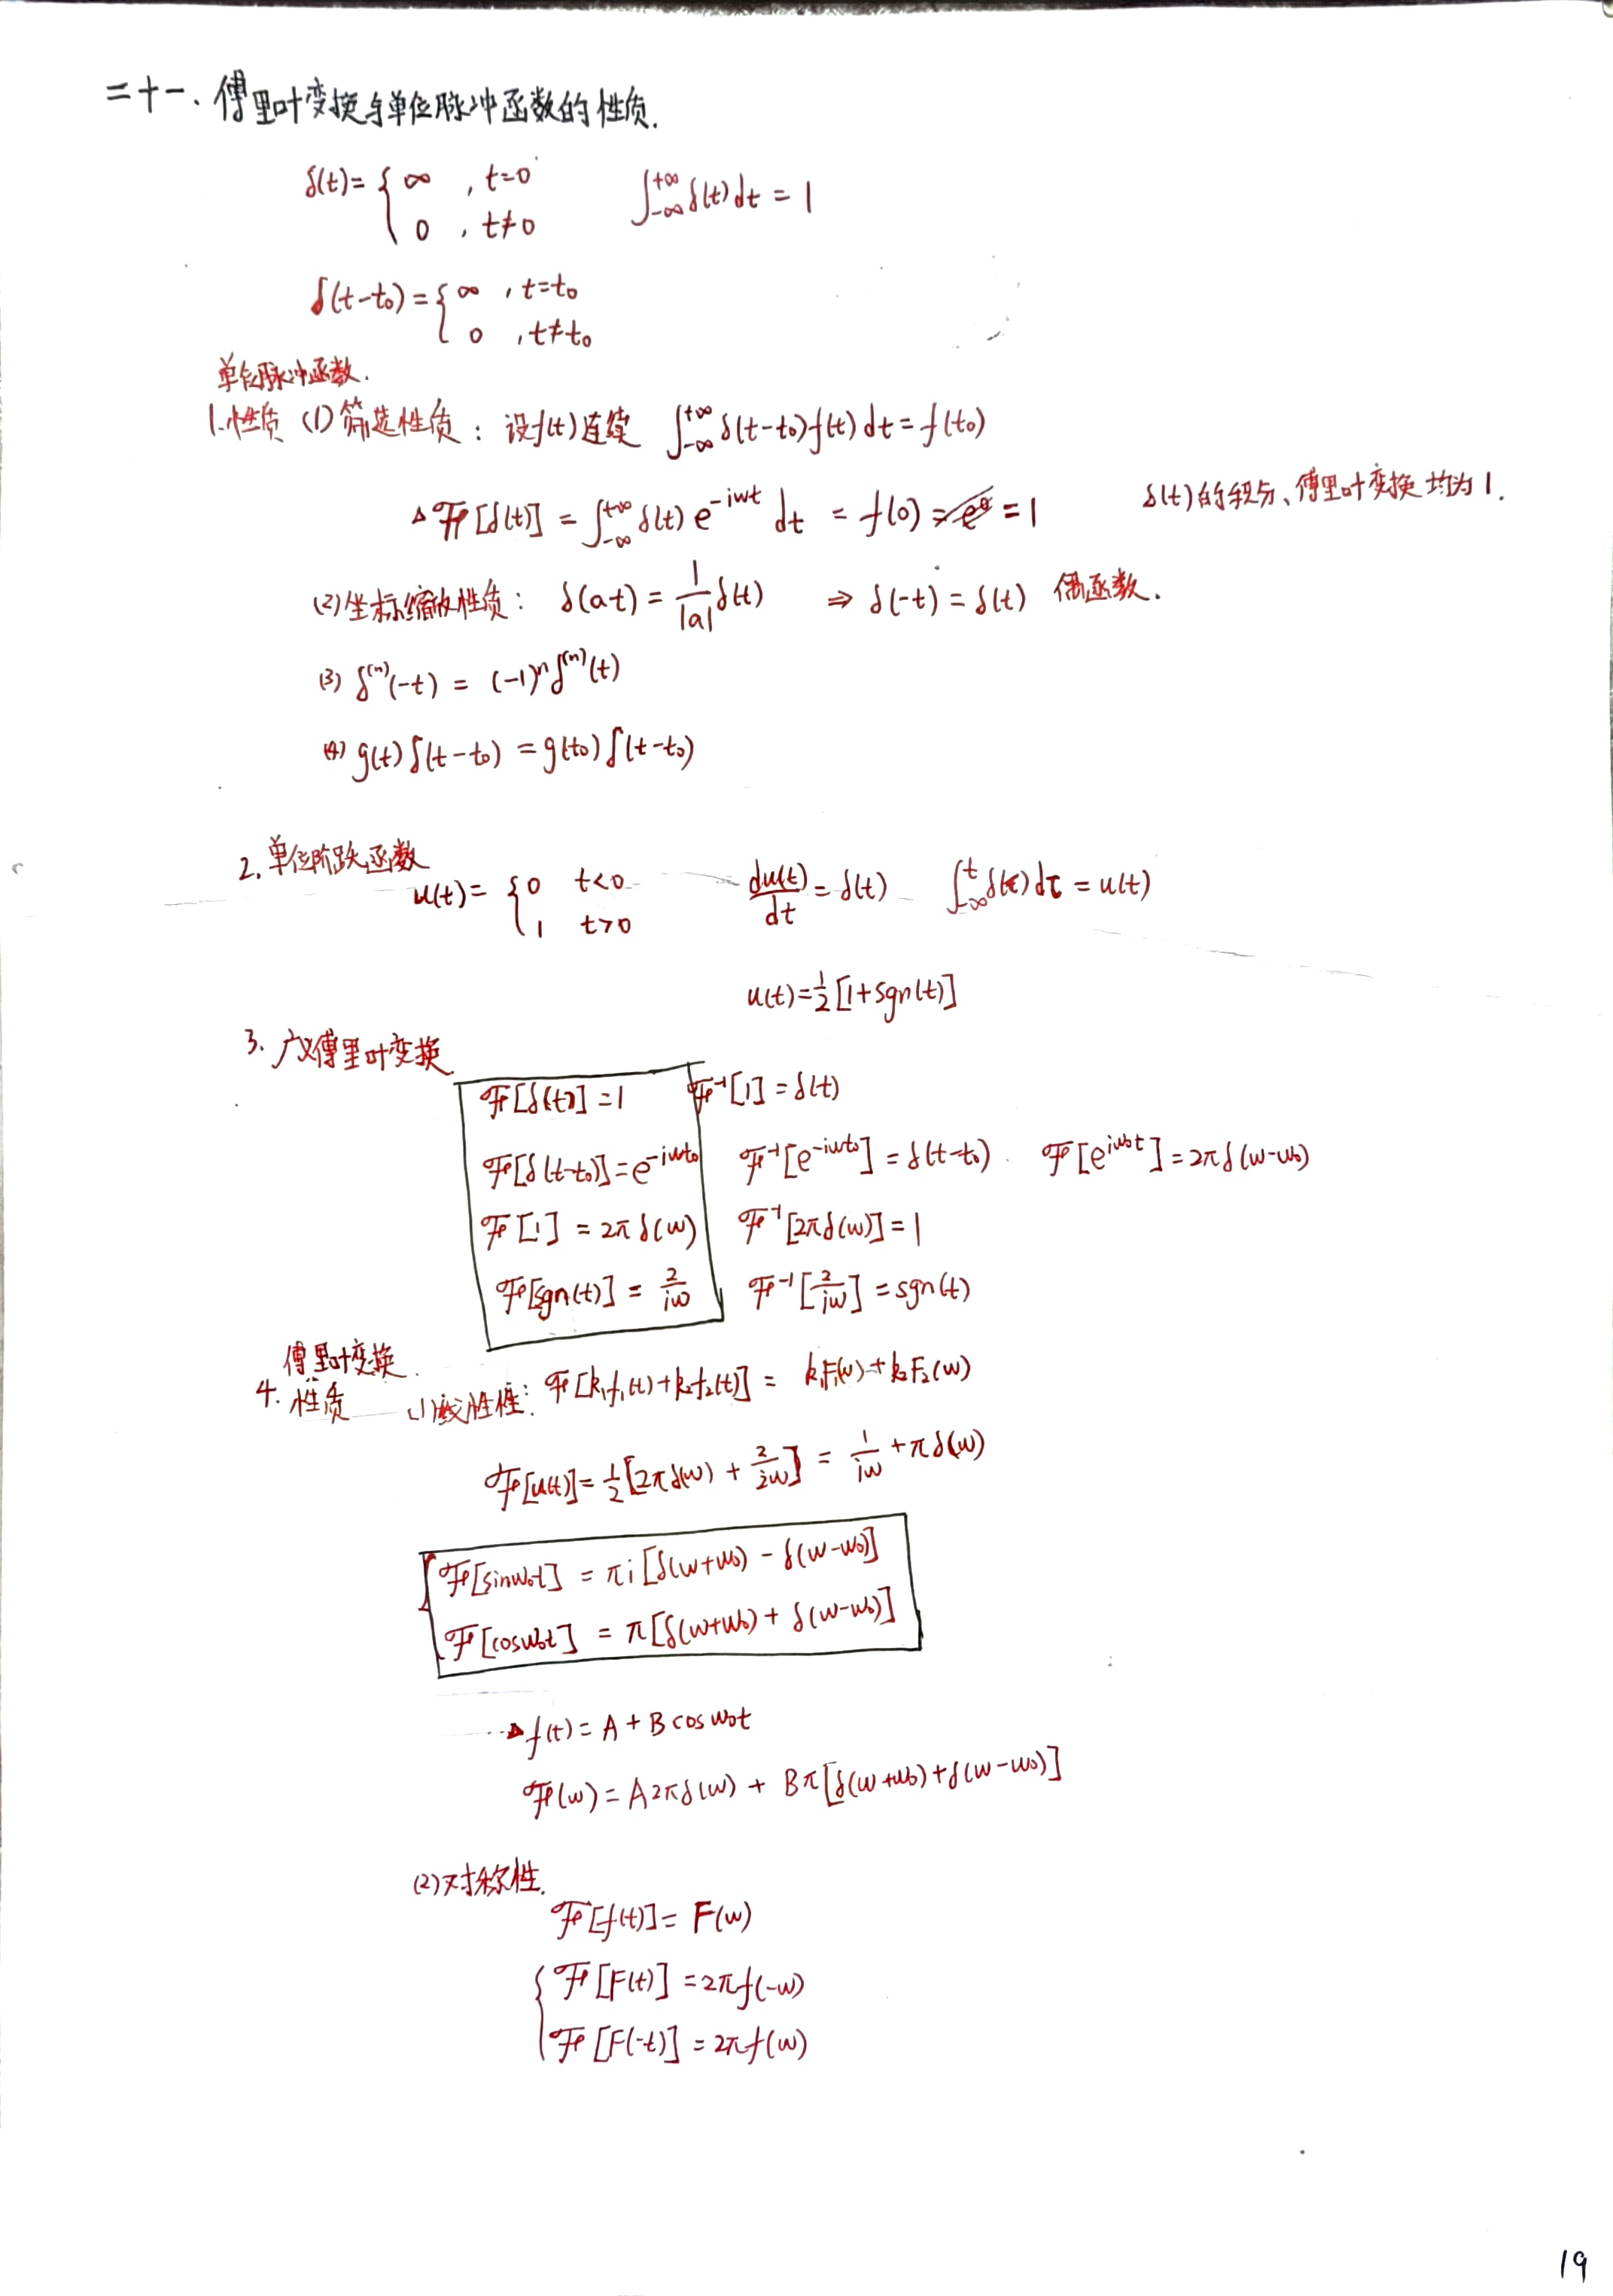 二十一、傅里叶变换与单位脉冲函数的性质.
δ(t)= { ∞ , t=0 ; 0 , t≠0    ∫_{-∞}^{+∞} δ(t)dt = 1
δ(t-t₀)= { ∞ , t=t₀ ; 0 , t≠t₀
单位脉冲函数.
1.性质 (1) 筛选性质: 设f(t)连续 ∫_{-∞}^{+∞} δ(t-t₀)f(t)dt=f(t₀)
△ ℱ[δ(t)] = ∫_{-∞}^{+∞} δ(t) e^{-iwt} dt = f(0) = 1    δ(t)的积分、傅里叶变换均为1.
(2)坐标缩放性质: δ(at) = \frac{1}{|a|}δ(t) ⇒ δ(-t) = δ(t) 偶函数.
(3) δ^{(n)}(-t) = (-1)^n δ^{(n)}(t)
(4) g(t)δ(t-t₀) = g(t₀)δ(t-t₀)
2.单位阶跃函数
u(t)= { 0 t<0 ; 1 t>0    \frac{du(t)}{dt} = δ(t)    ∫_{-∞}^{t} δ(τ)dτ = u(t)
u(t)=\frac{1}{2}[1+sgn(t)]
3. 广义傅里叶变换
ℱ[δ(t)] =1    ℱ⁻¹[1] = δ(t)
ℱ[δ(t-t₀)]=e^{-iwt₀}    ℱ⁻¹[e^{-iwt₀}] = δ(t-t₀)    ℱ[e^{iw₀t}] = 2πδ(w-w₀)
ℱ[1] = 2πδ(w)    ℱ⁻¹[2πδ(w)] = 1
ℱ[sgn(t)] = \frac{2}{iw}    ℱ⁻¹[\frac{2}{iw}] = sgn(t)
傅里叶变换
4. 性质 (1)线性性: ℱ[k₁f₁(t)+k₂f₂(t)] = k₁F₁(w)+k₂F₂(w)
ℱ[u(t)]=\frac{1}{2}[2πδ(w) + \frac{2}{iw}] = \frac{1}{iw} + πδ(w)
ℱ[sinw₀t] = πi[δ(w+w₀) - δ(w-w₀)]
ℱ[cosw₀t] = π[δ(w+w₀) + δ(w-w₀)]
△ f(t) = A + B cosw₀t
ℱ(w) = A2πδ(w) + Bπ[δ(w+w₀)+δ(w-w₀)]
(2)对称性.
ℱ[f(t)] = F(w)
{ ℱ[F(t)] = 2πf(-w)
ℱ[F(-t)] = 2πf(w)
19